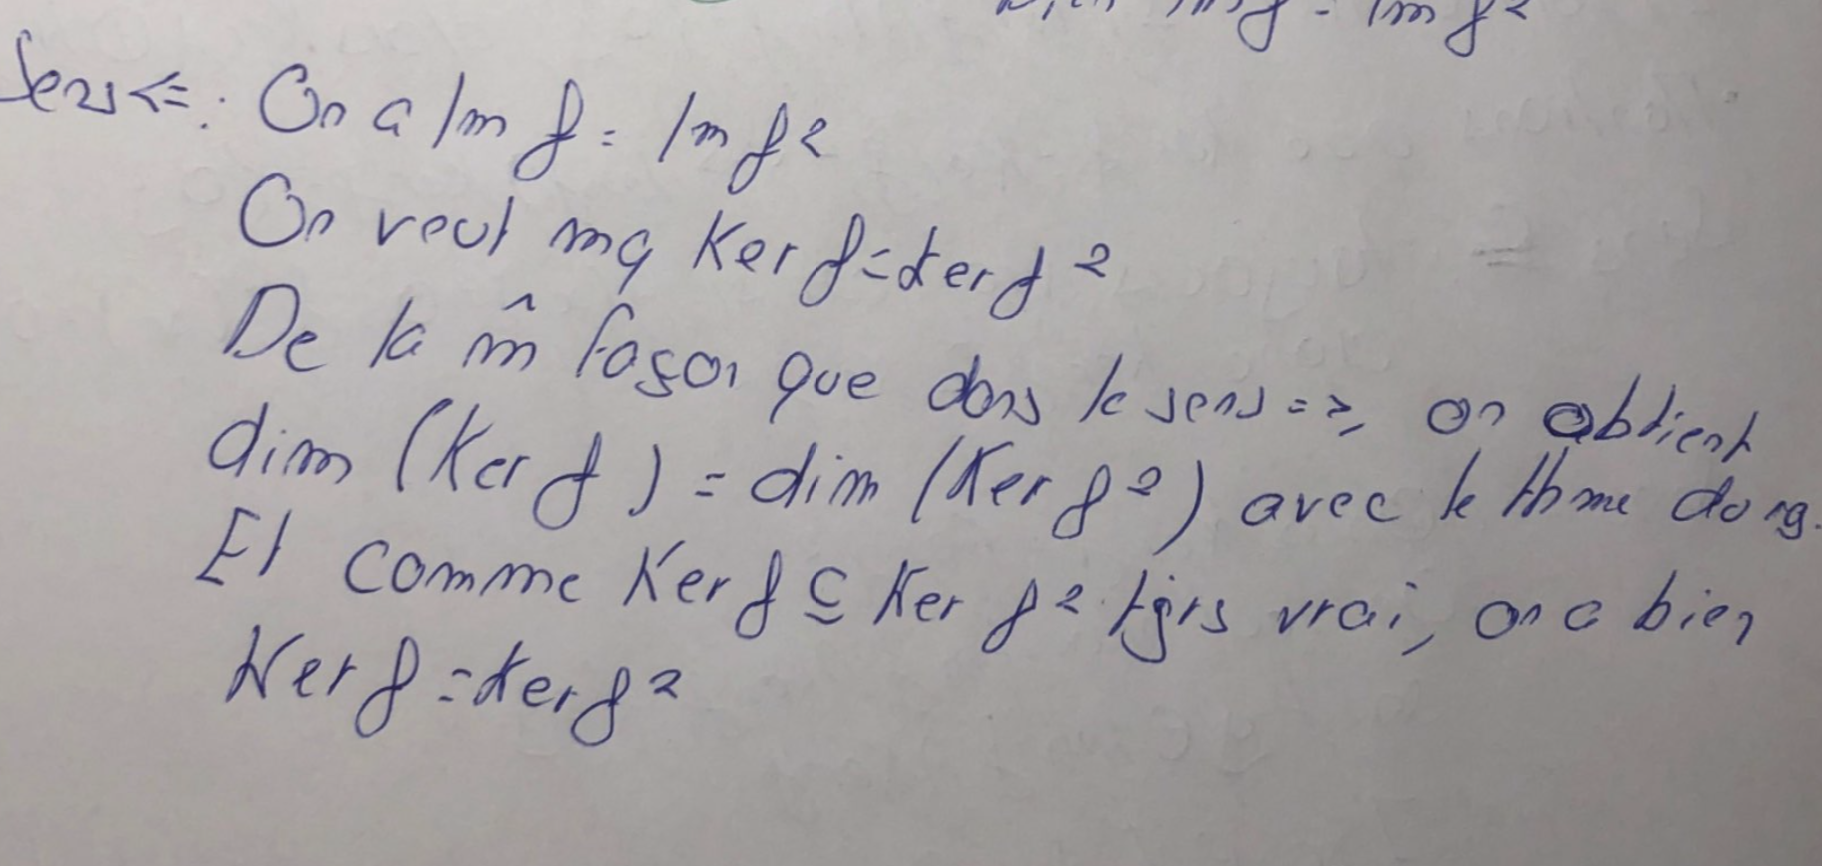 Im f²
Sens <=: On a Im f = Im f²
On veut mq Ker f = Ker f²
De la m̂ façon que dans le sens =>, on obtient
dim (Ker f) = dim (Ker f²) avec le thme du rg.
Et comme Ker f ⊆ Ker f² tjrs vrai, on a bien
Ker f = Ker f²